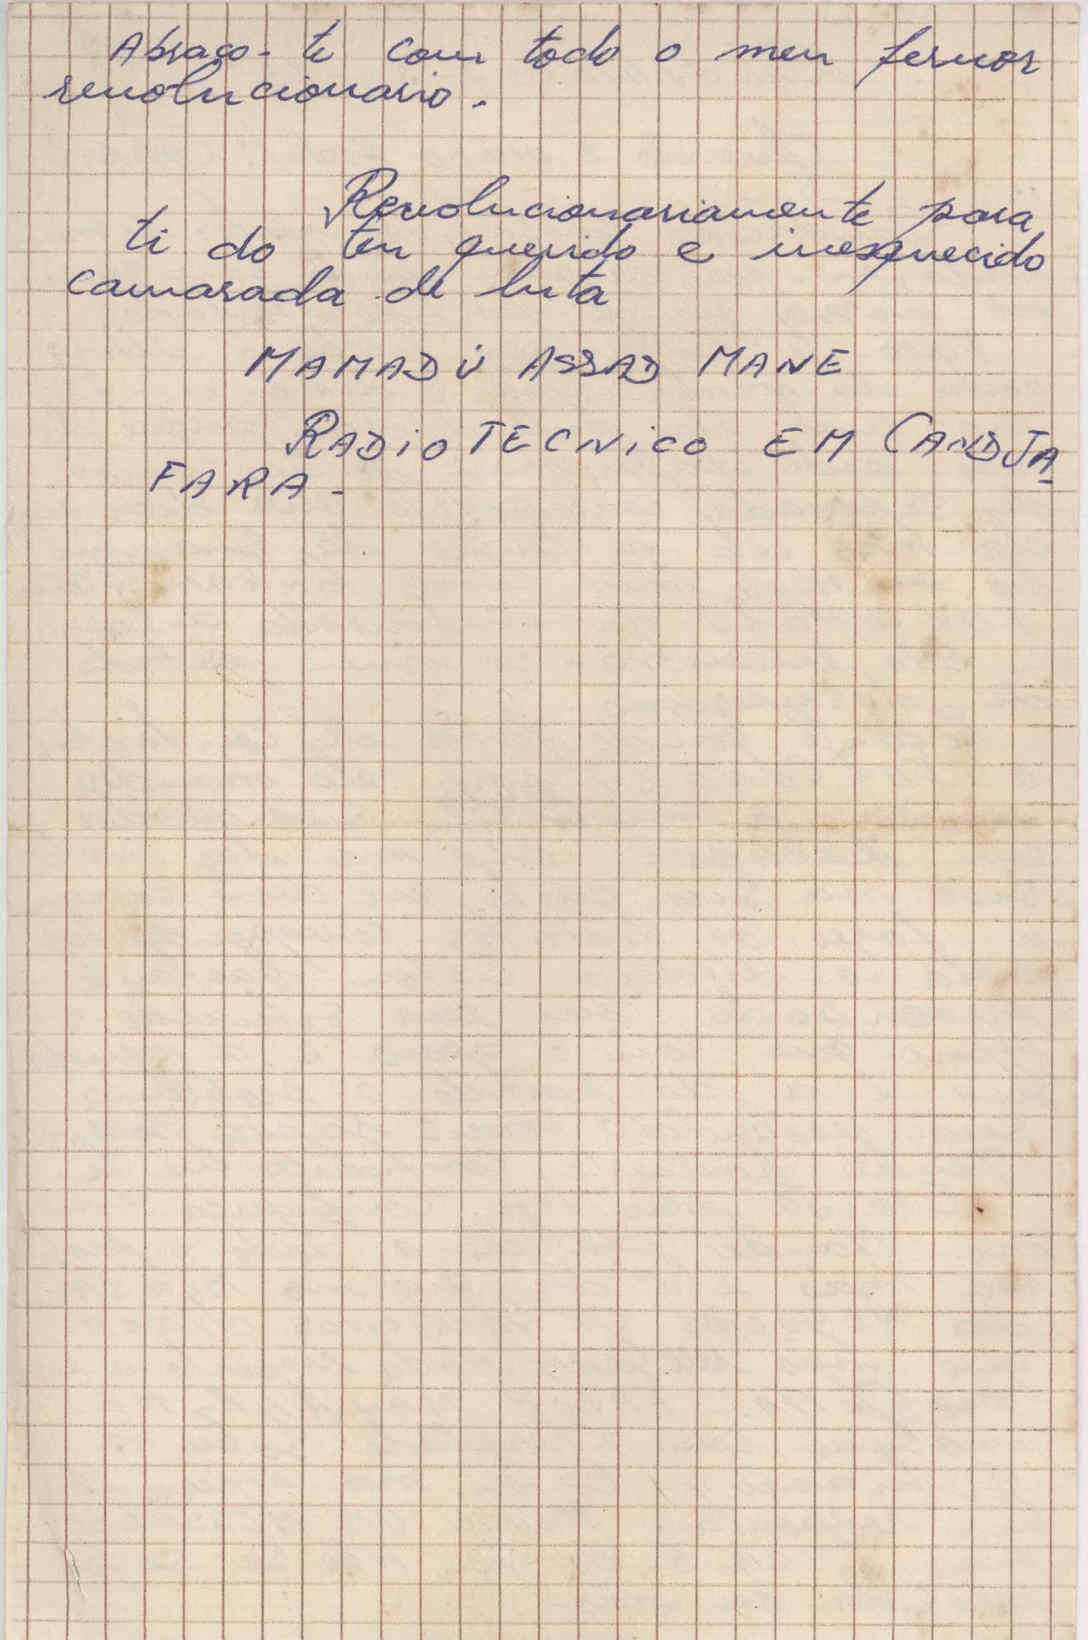 Abraço-te com todo o meu fervor
revolucionario.
Revolucionariamente para
ti do teu querido e inesquecido
camarada de luta
MAMADÚ ASSAD MANE
RADIOTECNICO EM CANDJA
FARA-